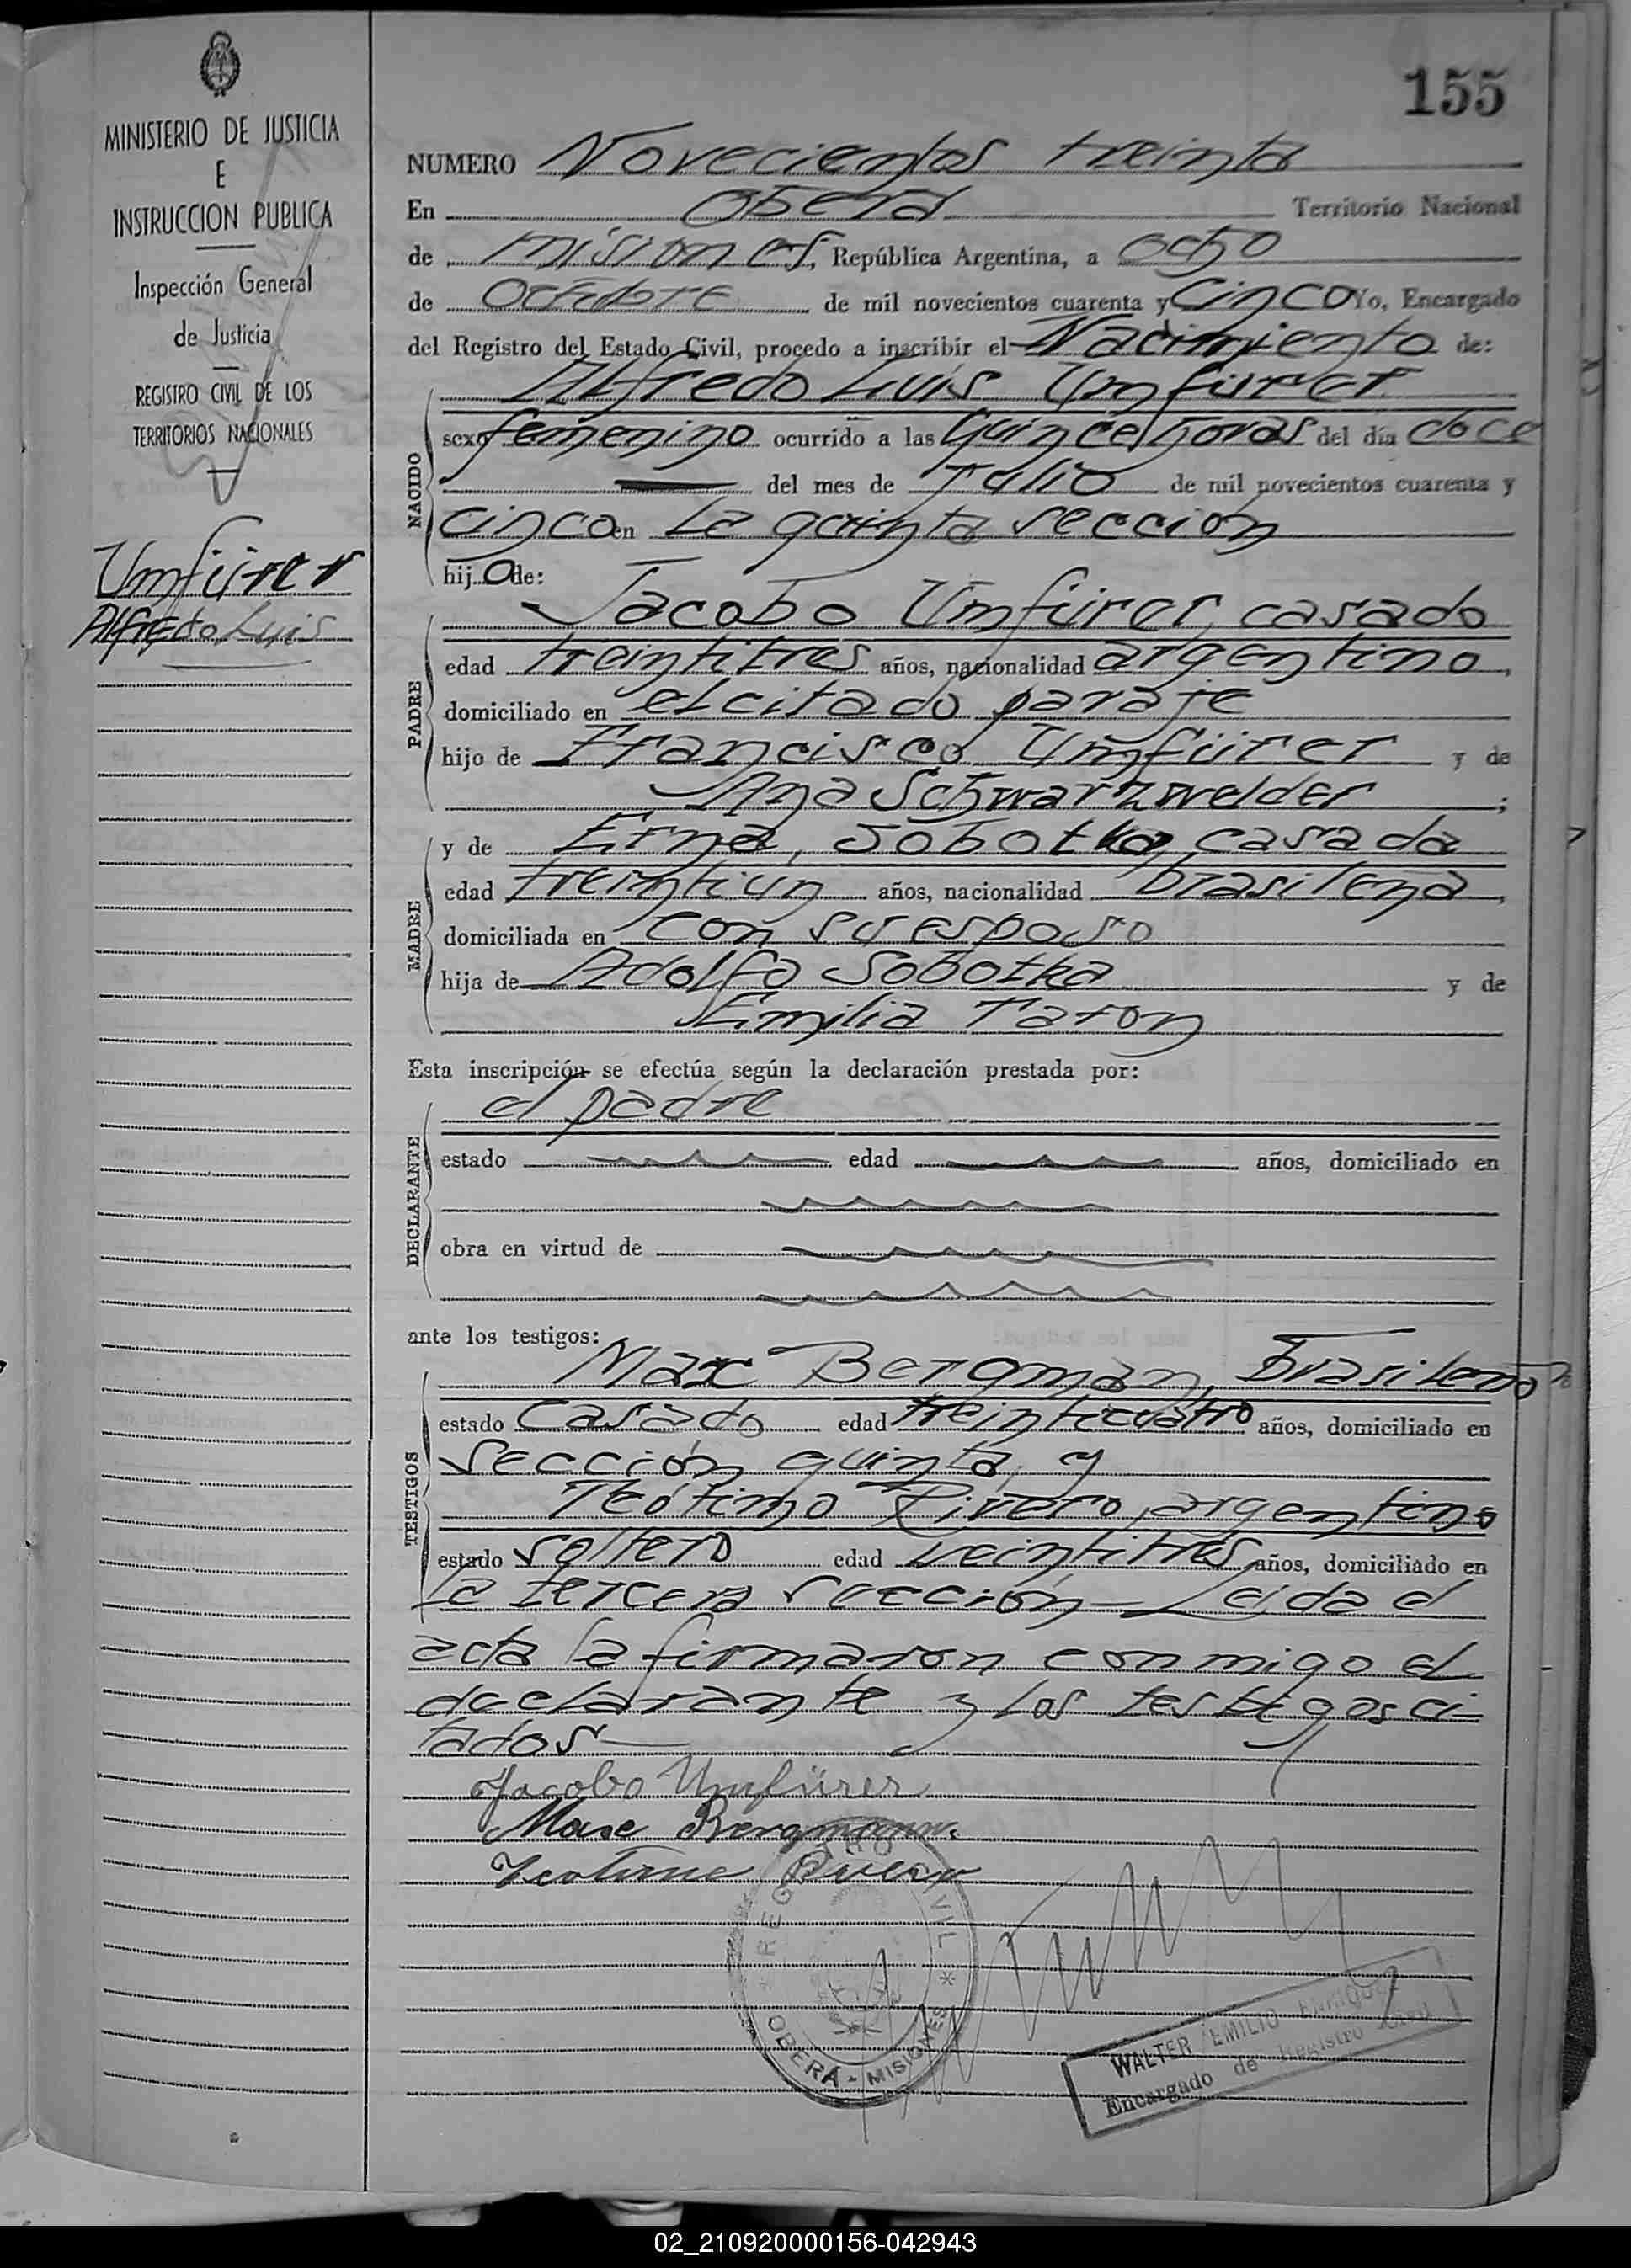 155
MINISTERIO DE JUSTICIA
E
INSTRUCCION PUBLICA
Inspección General
de Justicia
REGISTRO CIVIL DE LOS
TERRITORIOS NACIONALES
Umfürer
Alfredo Luis
NUMERO Novecientos treinta
En Oberá Territorio Nacional
de misiones, República Argentina, a ocho
de Octubre de mil novecientos cuarenta y cinco Yo, Encargado
del Registro del Estado Civil, procedo a inscribir el Nacimiento de:
NACIDO
Alfredo Luis Umfürer
sexo femenino ocurrido a las quince horas del día doce
del mes de Julio de mil novecientos cuarenta y
cinco en la quinta sección
hijo de:
PADRE
Jacobo Umfürer, casado
edad treintitres años, nacionalidad argentino,
domiciliado en el citado paraje
hijo de Francisco Umfürer y de
Ana Schwarzwelder ;
MADRE
y de Erna, Sobotka, casada
edad treintiun años, nacionalidad brasileña,
domiciliada en con su esposo
hija de Adolfo Sobotka y de
Emilia Taron
Esta inscripción se efectúa según la declaración prestada por:
DECLARANTE
el padre
estado edad años, domiciliado en
obra en virtud de
ante los testigos:
TESTIGOS
Max Bergman, brasileño
estado casado edad treinticuatro años, domiciliado en
sección quinta, y
Teótimo Rivero, argentino
estado soltero edad veintitres años, domiciliado en
la tercera sección — Leida el
acta la firmaron conmigo el
declarante y los testigos ci-
tados —
Jacobo Umfürer
Max Bergmann.
Teotimo Rivero
REGISTRO CIVIL * OBERÁ - MISIONES *
WALTER EMILIO ENRIQUEZ
Encargado de Registro Civil
02_210920000156-042943